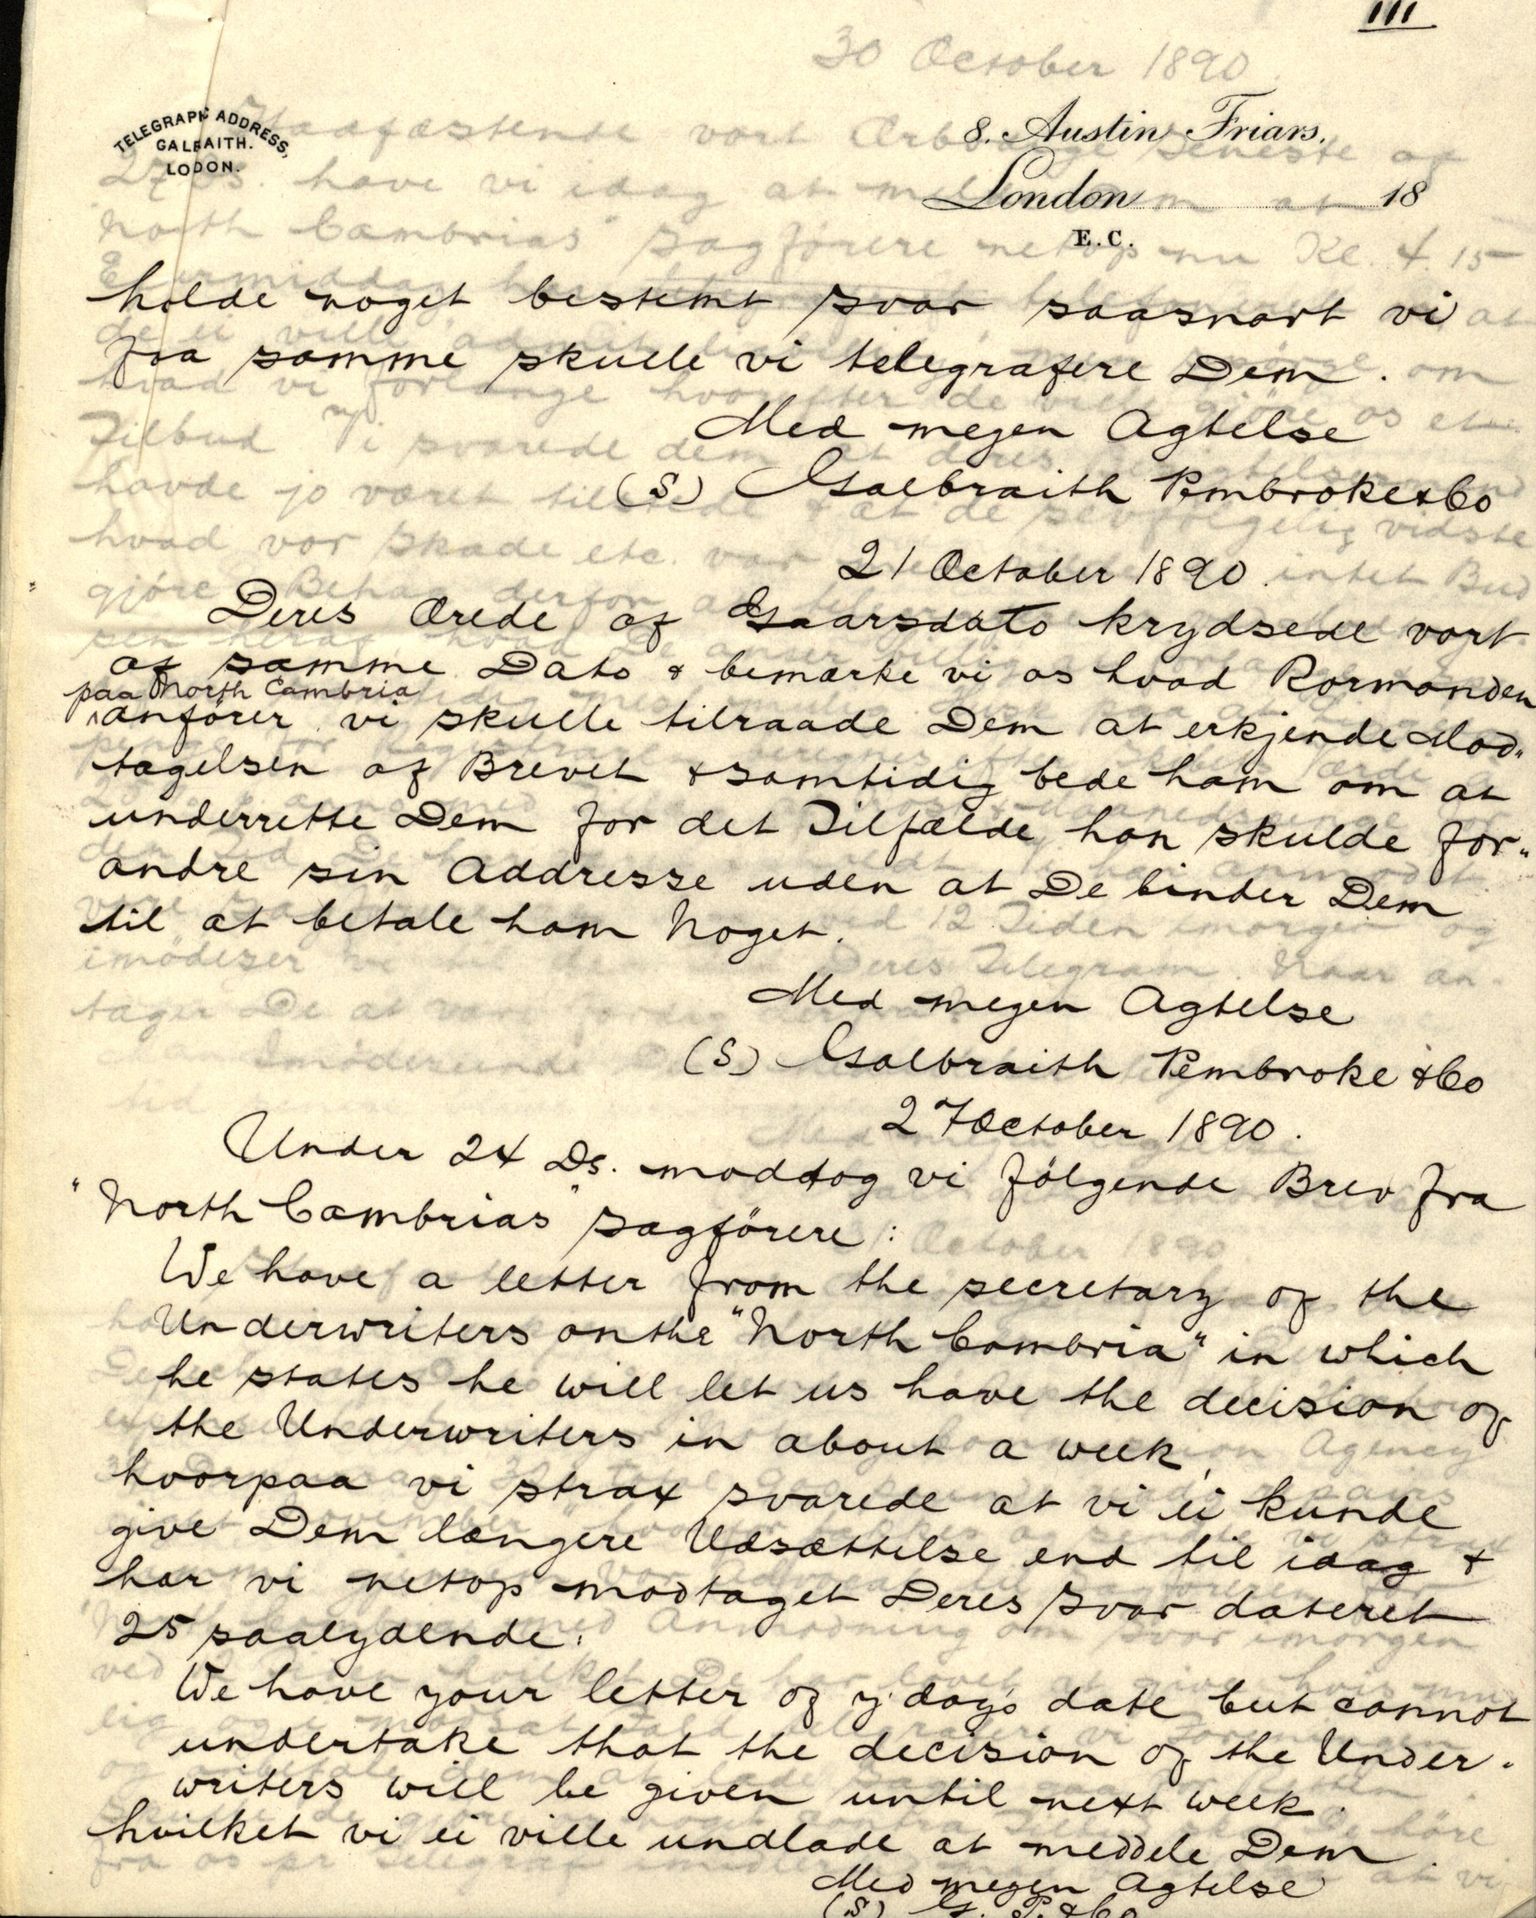 III
TELEGRAPH ADDRESS,
GALBRAITH.
LODON.
8. Austin Friars.
London 18
E.C.
holde noget bestemt svar saasnart vi
fra samme skulle vi telegrafere Dem.
Med megen Agtelse
(S) Galbraith Pembroke & Co
21 October 1890.
Deres Ærede af Gaarsdato krydsede vort
af samme Dato & bemærke vi os hvad Rormanden
paa North Cambria
anförer vi skulle tilraade Dem at erkjende Mod"
tagelsen af Brevet & samtidig bede ham om at
underrette Dem for det Tilfælde han skulde for"
andre sin Addresse uden at De binder Dem
til at betale ham Noget.
Med megen Agtelse
(S) Galbraith Pembroke & Co
27 October 1890.
Under 24 Ds. moddtog vi fölgende Brev fra
"North Cambrias" sagförere:
We have a letter from the secretary of the
Underwriters on the "North Cambria" in which
he states he will let us have the decision of
the Underwriters in about a week,
hvorpaa vi strax svarede at vi ei kunde
give Dem længere Udsættelse end til idag &
har vi netop modtaget Deres svar dateret
25 saalydende:
We have your letter of y'day's date but cannot
undertake that the decision of the Under-
writers will be given until next week.
hvilket vi ei ville undlade at meddele Dem.
Med megen Agtelse
(S) G. P. & Co